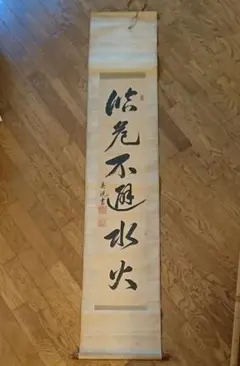 臨危不避水火